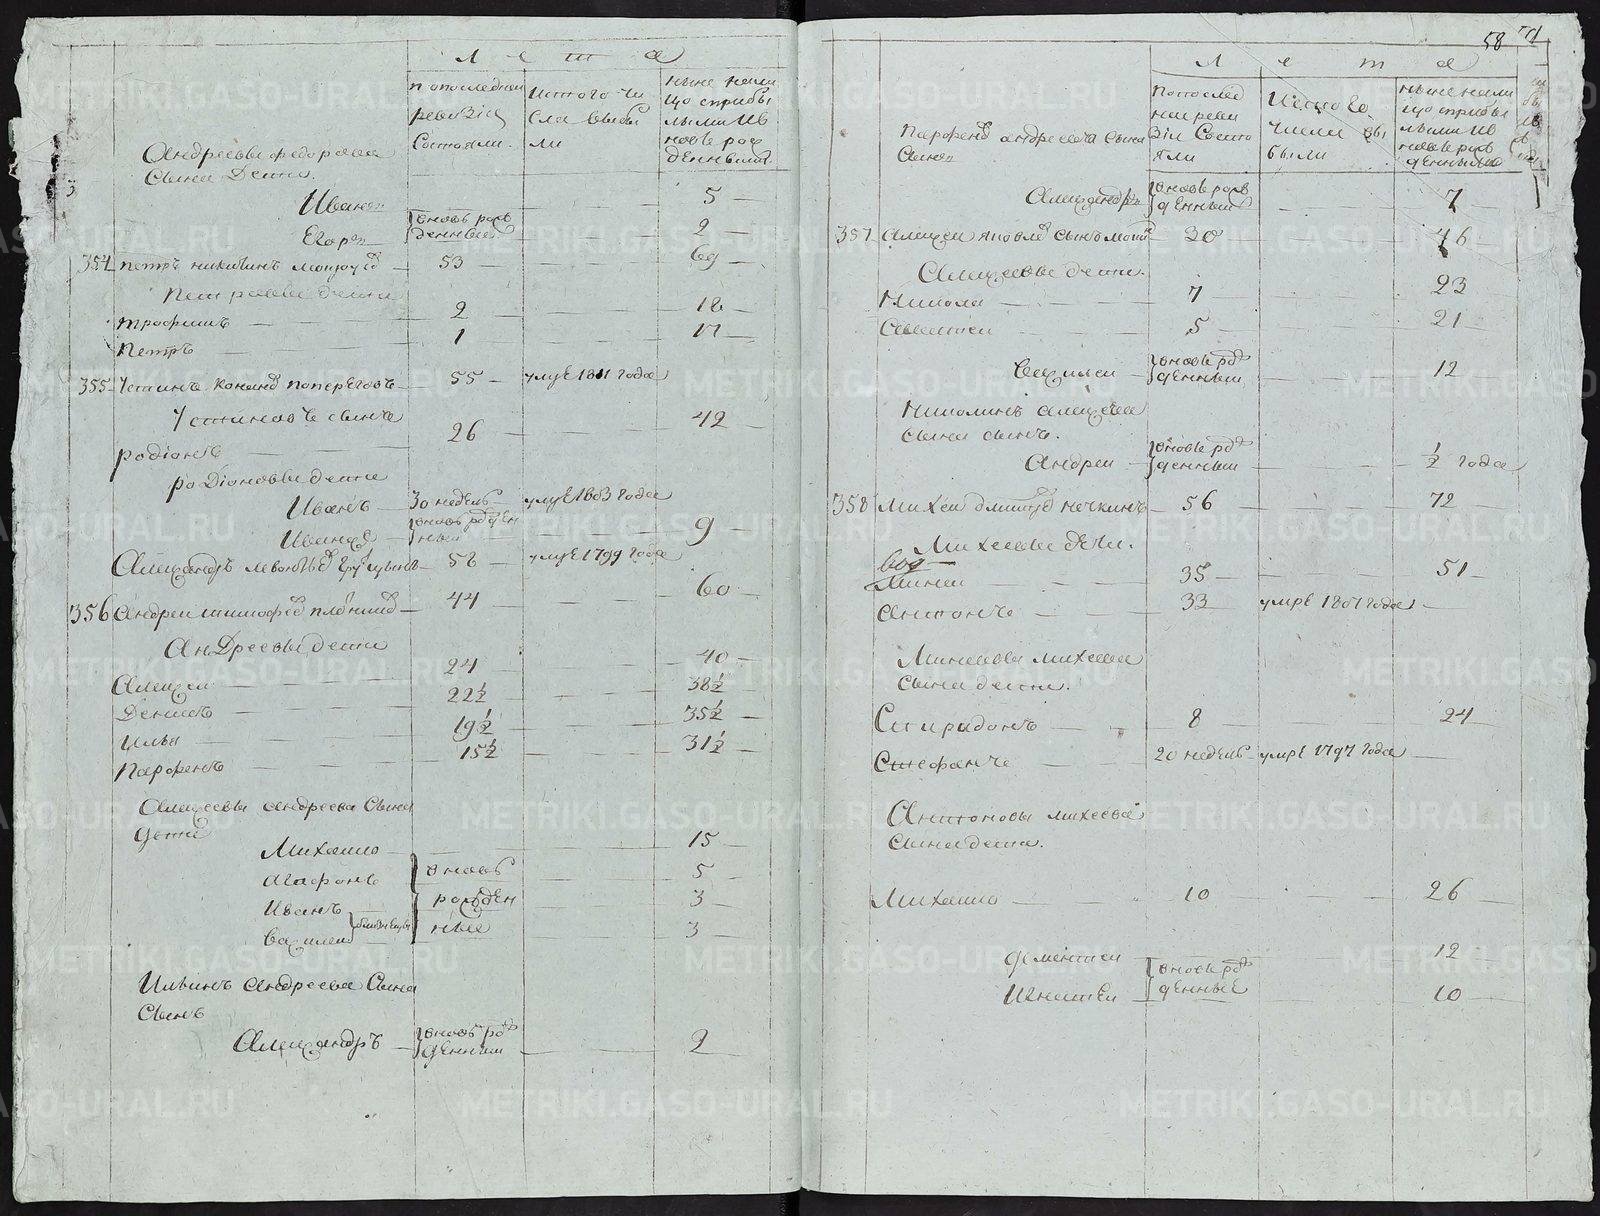 Лета
по последней ревизiи состояли.
изтого числа выбыли
ныне налицо сприбылыми ивновь рожденными
Андреевы федорова
сына дети.
Иванъ 5
Егоръ вновь рожденные 2
354 петръ никитинъ 53 69
Петровы дети
трофимъ 2 18
Петръ 1 17
355 Устинъ поперечовъ 55 умре 1811 года
Устиновъ сынъ
родiонъ 26 42
родiоновы дети
Иванъ 30 недель умре 1803 года
Иванъ вновь рожденный 9
Александръ 58 умре 1799 года
356 Андреи тимофе 44 60
Андреевы дети
Алексеи 24 40
Денисъ 22½ 38½
Илья 19½ 35½
Парфенъ 15½ 31½
Алексеевы андреева сына
дети
Михаило 15
Агафонъ вновь 5
Иванъ рожден 3
василеи близнецы ные 3
Ильинъ андреева сына
сынъ
Александръ вновь рожденныи 2
58
Лета
по последнеи ревизiи состояли
изтого числа выбыли
ныне налицо сприбылыми ивновь рожденными
Парфена андреева сына
сынъ
Александръ вновь рожденный 7
357 Алексеи яковлев сынъ 30 46
Алексеевы дети.
Никола 7 23
Савватеи 5 21
василеи вновь рожденныи 12
Николинъ алексеева
сына сынъ.
Андреи вновь рожденныи ½ года
358 Михеи нечкинъ 56 72
Михеевы дети.
Минеи 35 51
Антонъ 33 умре 1807 года
Минеевы михеева
сына дети.
Спиридонъ 8 24
Стефанъ 20 недель умре 1797 года
Антоновы михеева
сына дети.
Михаило 10 26
дементеи 12
Игнатеи вновь рожденные 10
METRIKI.GASO-URAL.RU